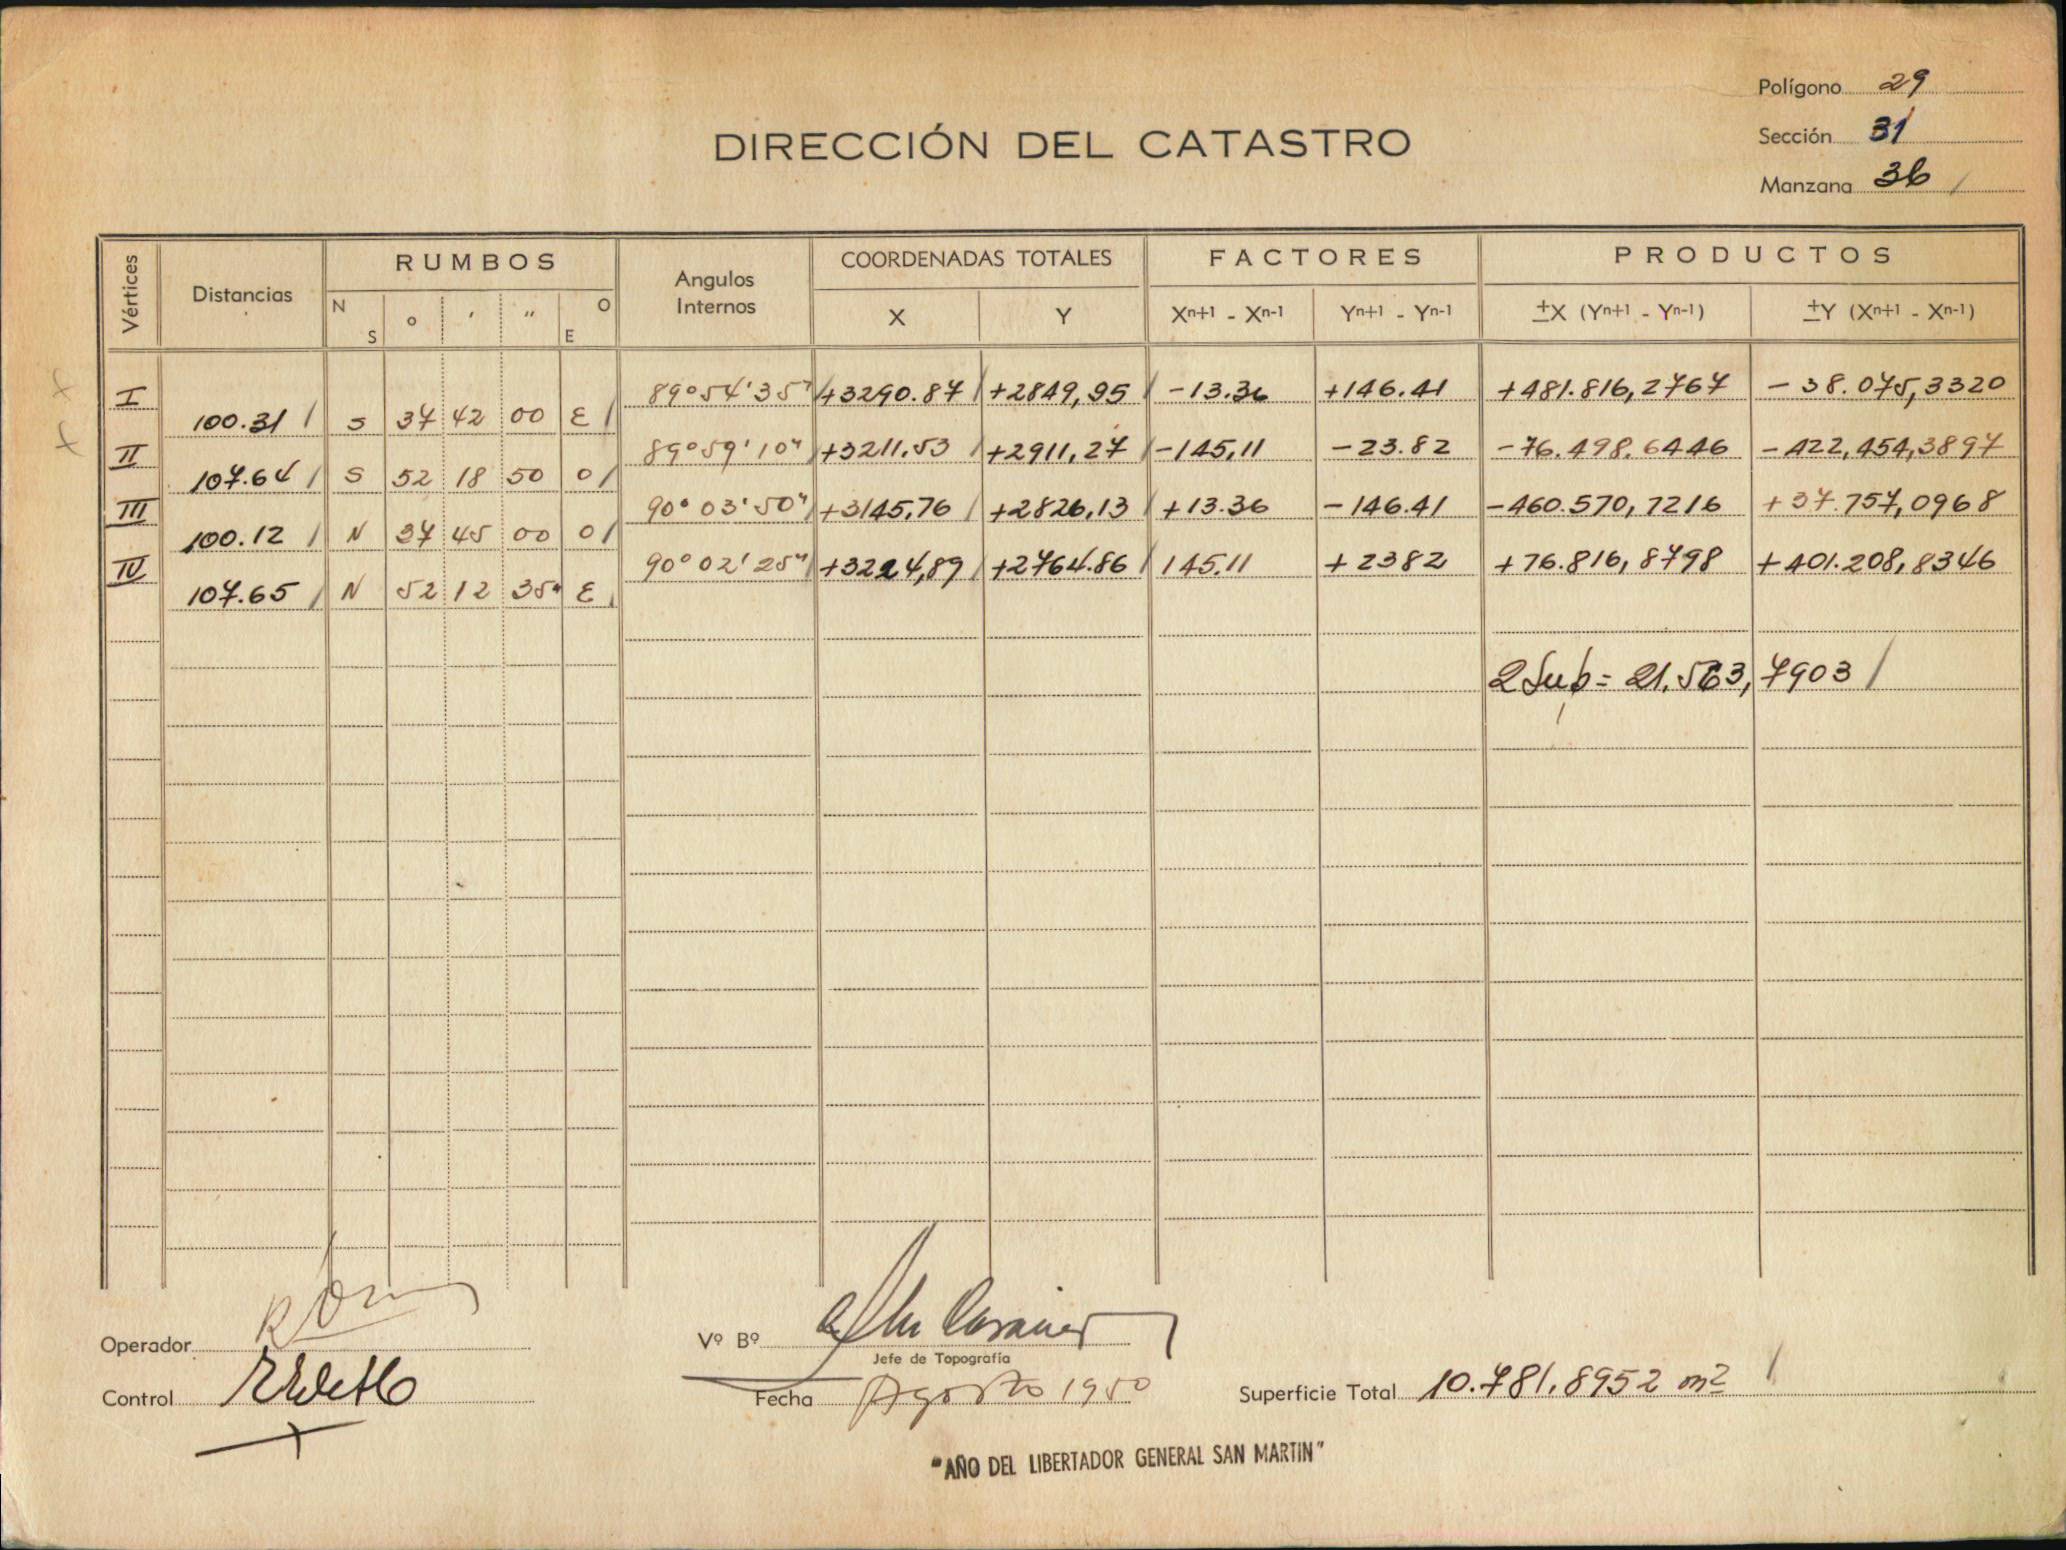 Polígono 29
DIRECCIÓN DEL CATASTRO
Sección 31
Manzana 36 /
Vértices Distancias RUMBOS Angulos Internos COORDENADAS TOTALES FACTORES PRODUCTOS
N S o ' " O E X Y Xn+1 - Xn-1 Yn+1 - Yn-1 ±X (Yn+1 - Yn-1) ±Y (Xn+1 - Xn-1)
I 89º54'35" +3290.87 +2849,95 -13.36 +146.41 +481.816,2767 -38.075,3320
100.31 / S 37 42 00 E /
II 89º59'10" +3211.53 +2911,27 -145,11 -23.82 -76.498.6446 -422,454,3897
107.64 / S 52 18 50 O /
III 90º03'50" +3145,76 +2826,13 +13.36 -146.41 -460.570,7216 +37.757,0968
100.12 / N 37 45 00 O /
IV 90º02'25" +3224,89 +2764.86 145.11 +2382 +76.816,8798 +401.208,8346
107.65 / N 52 12 35" E
2 Sup = 21.563,7903 /
Operador
Vº Bº
Jefe de Topografía
Control
Fecha Agosto 1950
Superficie Total 10.781.8952 m2 /
"AÑO DEL LIBERTADOR GENERAL SAN MARTIN"